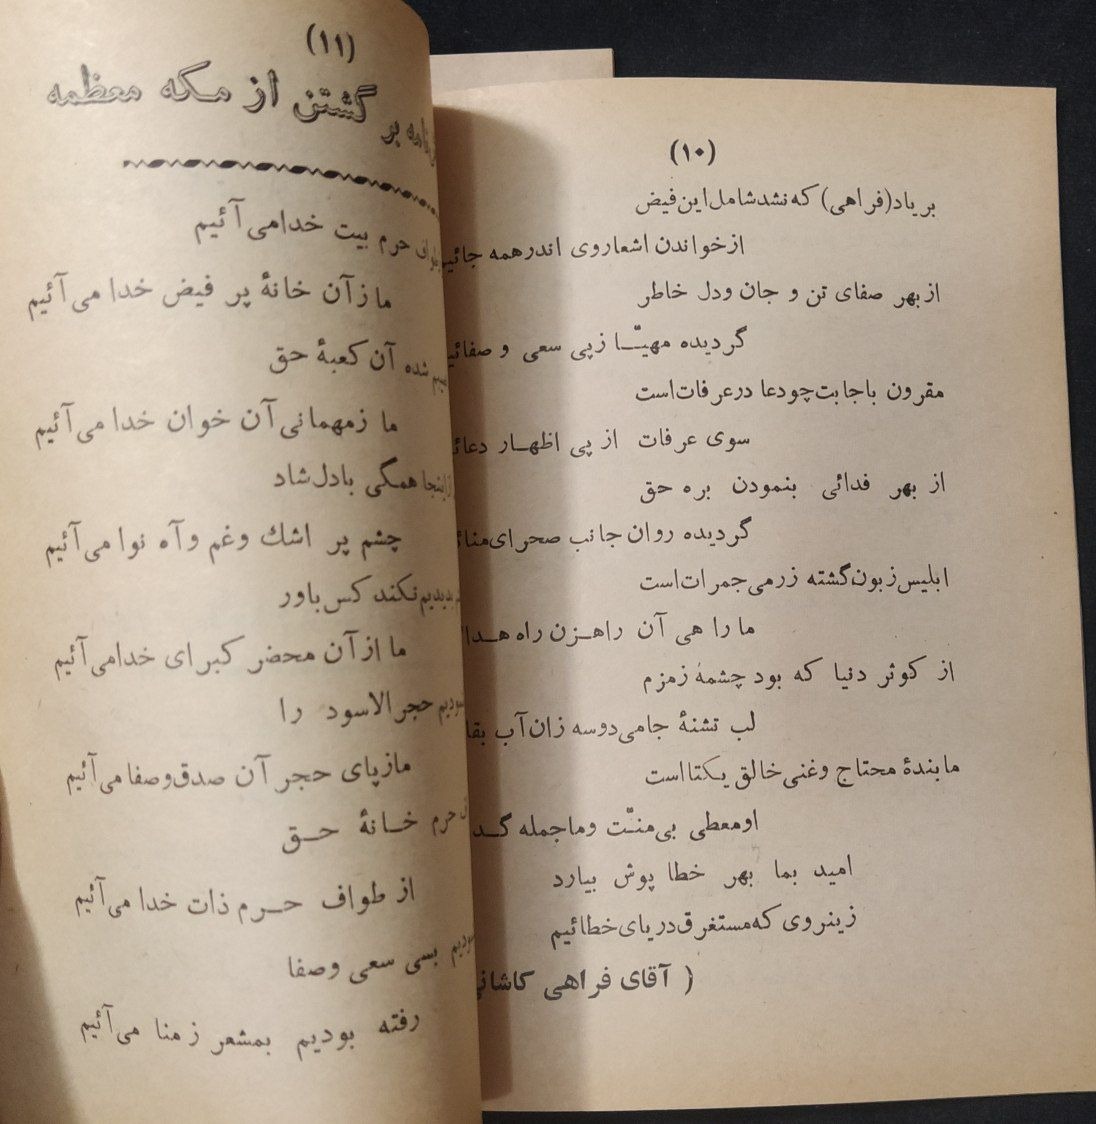 (۱۰)
بریاد(فراهی) که نشد شامل این فیض
ازخواندن اشعاروی اندرهمه جائیم
ازبهر صفای تن و جان ودل خاطر
گردیده مهیّا زپی سعی و
مقرون باجابت چودعا درعرفات است
سوی عرفات از پی اظهار
از بهر فدائی بنمودن بره حق
گردیده روان جانب صحرای
ابلیس زبون گشته زرمی جمرات است
ما را هی آن راهزن راه
از کوثر دنیا که بود چشمهٔ زمزم
لب تشنهٔ جامی دوسه زان آب
مابندهٔ محتاج وغنی خالق یکتااست
اومعطی بی منّت وماجمله
امید بما بهر خطا پوش بیارد
زینروی که مستغرق دریای خطائیم
( آقای فراهی
(۱۱)
بر گشتن از مکه معظمه
حرم بیت خدامی آئیم
مازآن خانهٔ پر فیض خدا می آئیم
شده آن کعبهٔ حق
ما زمهمانی آن خوان خدا می آئیم
همگی بادل شاد
چشم پر اشك وغم وآه نوا می آئیم
نکند کس باور
ما ازآن محضر کبرای خدامی آئیم
حجرالاسود را
مازپای حجر آن صدق وصفا می آئیم
حرم خانهٔ حق
از طواف حرم ذات خدا می آئیم
بسی سعی وصفا
رفته بودیم بمشعر ز منا می آئیم